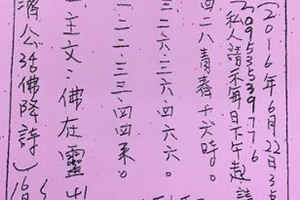 (2016年6月22日3点
0953539776
(私人請求每日下午起請
四二八青春十六時。
三二六、三六、四六六。
二二、三三、四四來。
主文:佛在靈山
濟公活佛降詩)